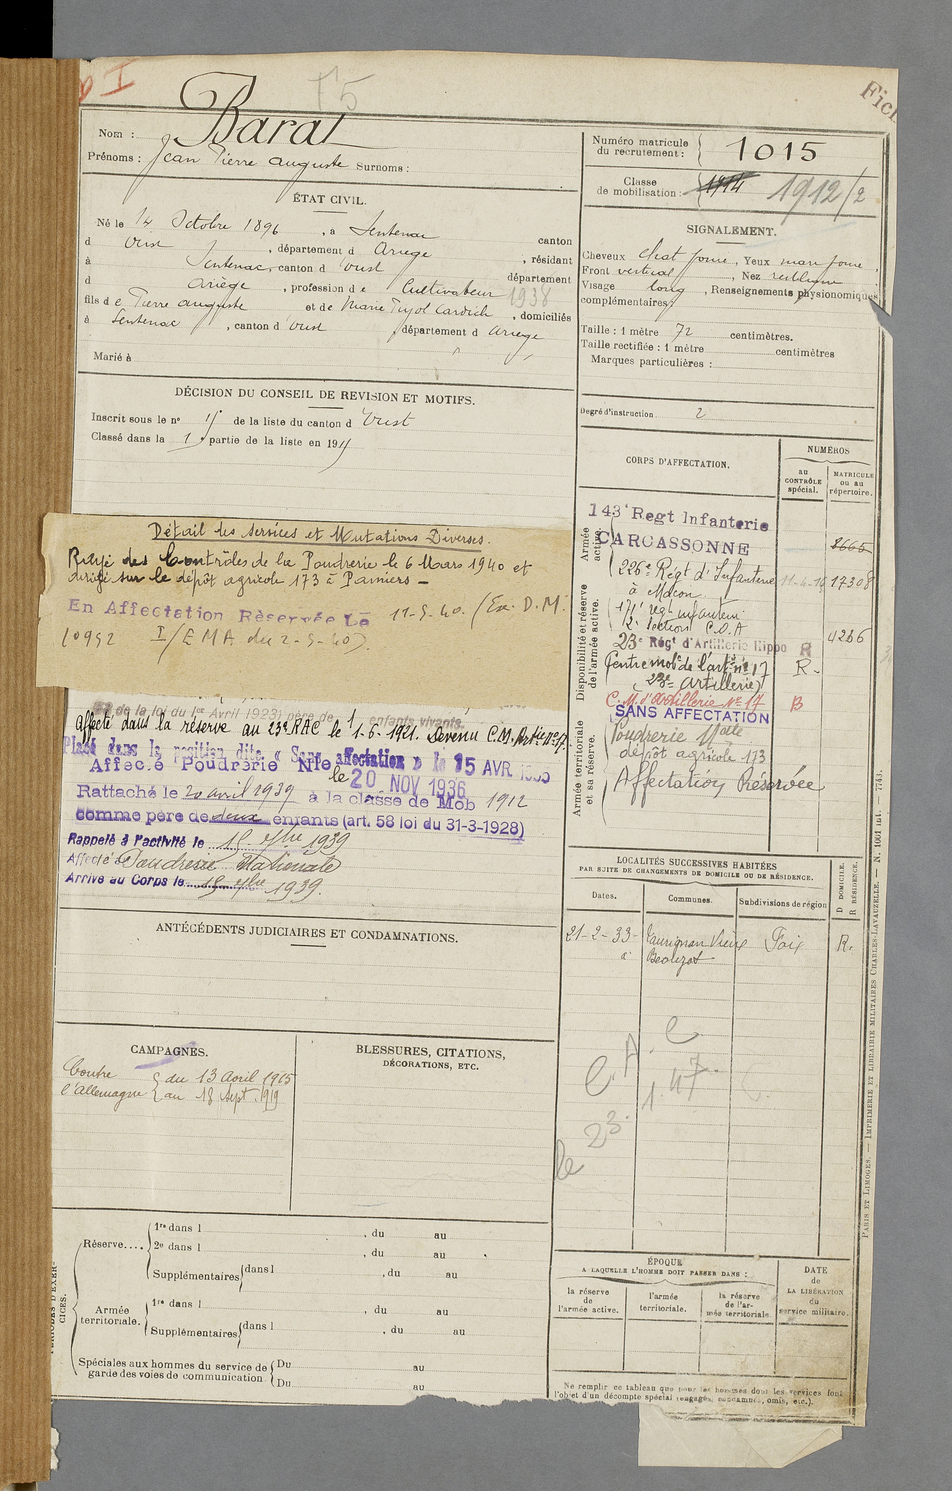 I
15
Fich
Nom : Barat
Prénoms : Jean Pierre Auguste Surnoms :
Numéro matricule du recrutement : 1015
Classe de mobilisation : 1914 1912/2
ÉTAT CIVIL.
Né le 14 Octobre 1896, à Sentenac canton
d Oust, département d Ariège, résidant
à Sentenac, canton d Oust département
d Ariège, profession de Cultivateur 1938
fils de Pierre Auguste et de Marie Pujol Cardich, domiciliés
à Sentenac, canton d'Oust, département d Ariège
Marié à
SIGNALEMENT.
Cheveux chat foncé, Yeux mar foncé,
Front vertical, Nez rectiligne
Visage long, Renseignements physionomiques
complémentaires
Taille : 1 mètre 72 centimètres.
Taille rectifiée : 1 mètre centimètres
Marques particulières :
Degré d'instruction. 2
DÉCISION DU CONSEIL DE REVISION ET MOTIFS.
Inscrit sous le n° de la liste du canton d Oust
Classé dans la 1 partie de la liste en 1915
Détail des services et Mutations Diverses.
Rayé des Contrôles de la Poudrerie le 6 Mars 1940 et
dirigé sur le dépôt agricole 173 à Pamiers –
En Affectation Réservée Le 11-5-40. (Ex. D.M.
10952 I/EMA du 2-5-40).
de la loi du 1er Avril 1923) père de 1 enfants vivants.
Affecté dans la réserve au 23e RAC le 1-6-1921. Devenu C.M. Artie N° 17
Placé dans la position dite « Sans affectation » le 15 AVR
Affecté Poudrerie Nle le 20 NOV 1936
Rattaché le 20 avril 1939 à la classe de Mob 1912
comme père de deux enfants (art. 58 loi du 31-3-1928)
Rappelé à l'activité le 15 7bre 1939
Affecté à Poudrerie Nationale
Arrivé au Corps le 15 7bre 1939.
CORPS D'AFFECTATION.
NUMÉROS
au CONTRÔLE spécial.
MATRICULE ou au répertoire.
Armée active.
Disponibilité et réserve de l'armée active.
Armée territoriale et sa réserve.
143e Regt Infanterie
CARCASSONNE 8665
226e Régt d'Infanterie 17308
à Mâcon
171e regt infanterie
C.O.A 4266
23e Régt d'Artillerie Hippo R
Centre mobe de l'artie n° 17 R.
(23e Artillerie)
C.M. d'Artillerie N° 17 B
SANS AFFECTATION
Poudrerie Natle
dépôt agricole 173
Affectation Réservée
LOCALITÉS SUCCESSIVES HABITÉES
PAR SUITE DE CHANGEMENTS DE DOMICILE OU DE RÉSIDENCE.
Dates.
Communes.
Subdivisions de région
D DOMICILE. R RÉSIDENCE.
21-2-33 Taurignan Vieux Foix R.
ANTÉCÉDENTS JUDICIAIRES ET CONDAMNATIONS.
CAMPAGNES.
Contre l'Allemagne { du 13 Avril 1915
au 18 Sept. 1919
BLESSURES, CITATIONS,
DÉCORATIONS, ETC.
C.A.C
le 23.1.47
PÉRIODES D'EXERCICES.
Réserve.... 1re dans l , du au
2e dans l , du au
Supplémentaires dans l , du au
Armée territoriale. 1re dans l , du au
Supplémentaires dans l , du au
Spéciales aux hommes du service de garde des voies de communication. Du au
Du au
ÉPOQUE
A LAQUELLE L'HOMME DOIT PASSER DANS :
la réserve de l'armée active.
l'armée territoriale.
la réserve de l'armée territoriale.
DATE de LA LIBÉRATION du service militaire.
Ne remplir ce tableau que pour les hommes dont les services font
l'objet d'un décompte spécial (engagés, condamnés, omis, etc.).
PARIS ET LIMOGES. — IMPRIMERIE ET LIBRAIRIE MILITAIRES CHARLES-LAVAUZELLE. — N. 1001 int. — 7743.